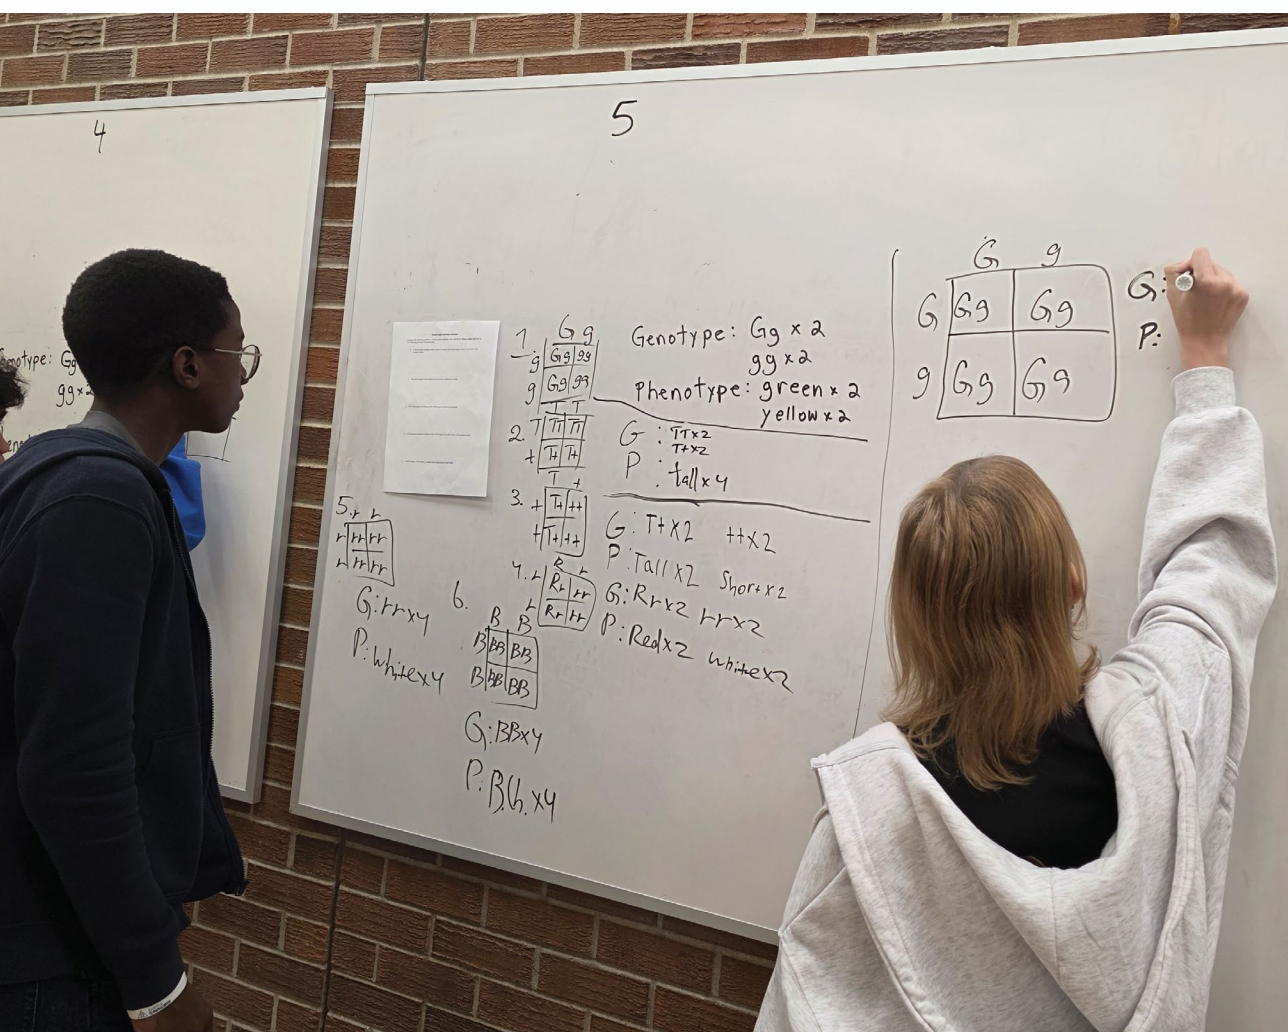 4
notype: Gg
gg×2
5
1.
G g
g Gg gg
g Gg gg
Genotype: Gg × 2
gg × 2
Phenotype: green × 2
yellow × 2
2.
T T
T TT TT
t Tt Tt
G: TT×2
Tt×2
P: tall×4
3.
T t
t Tt tt
t Tt tt
G: Tt×2 tt×2
P: Tall×2 Short×2
4.
R r
r Rr rr
r Rr rr
G: Rr×2 rr×2
P: Red×2 white×2
5.
r r
r rr rr
r rr rr
G: rr×4
P: white×4
6.
B B
B BB BB
B BB BB
G: BB×4
P: B.h.×4
G g
G Gg Gg
g Gg Gg
G:
P: